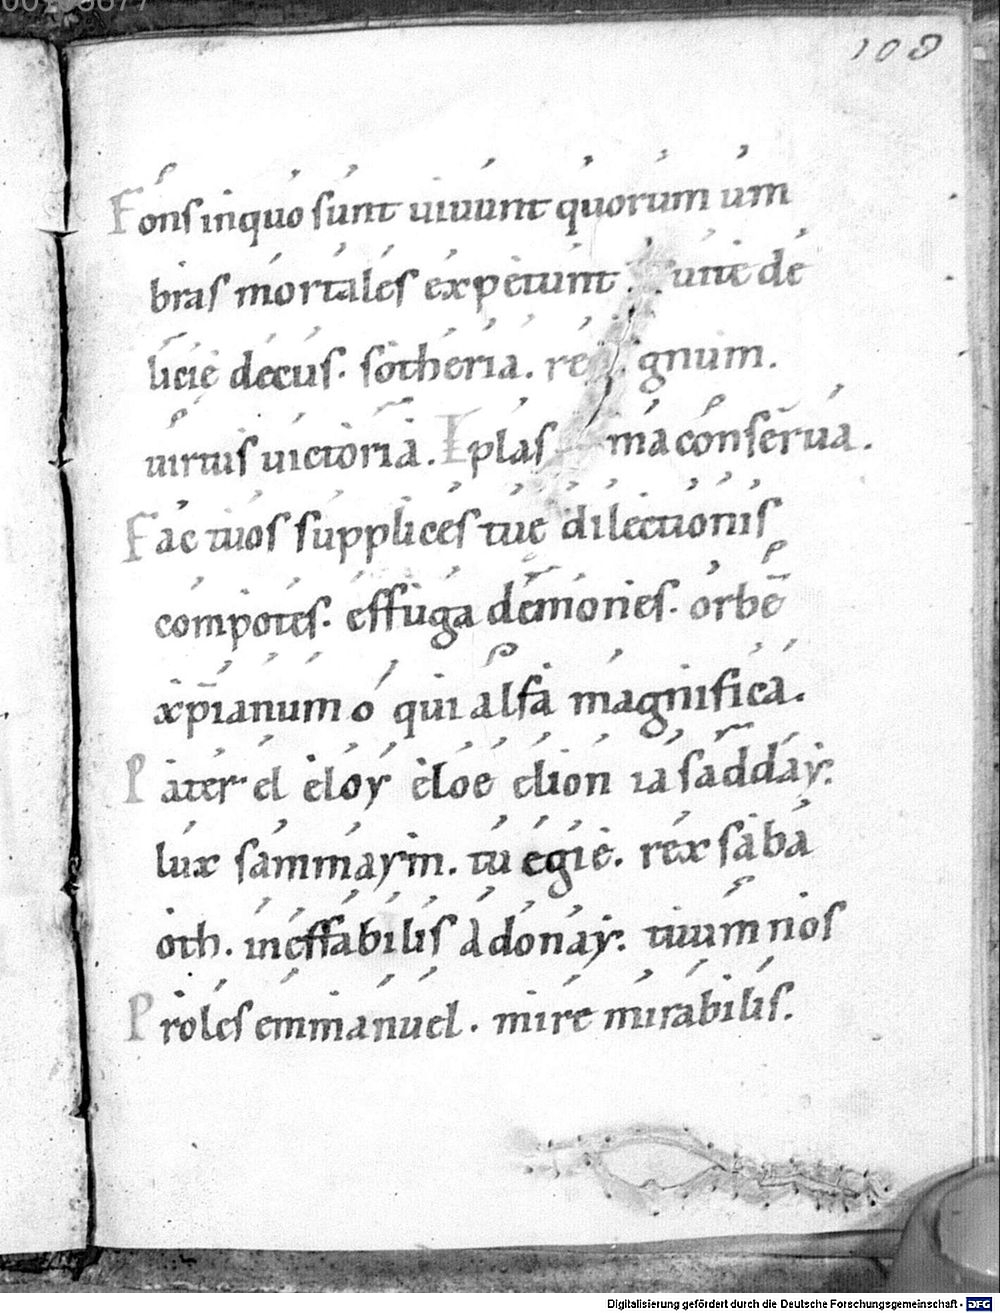 108
Fons inquo sunt uiuunt quorum um
bras mortales expetunt. uite de
licie decus. sotheria. re gnum.
uirtus uictoria. I plas ma conserua.
Fac tuos supplices tue dilectionis
compotes. effuga demones. orbē
xp̄ianum o qui alfa magnifica.
Pater el eloy eloe elion ia sadday.
lux sammaym. tu egie. rex saba
oth. ineffabilis adonay. tuum nos
Proles emmanuel. mire mirabilis.
Digitalisierung gefördert durch die Deutsche Forschungsgemeinschaft - DFG